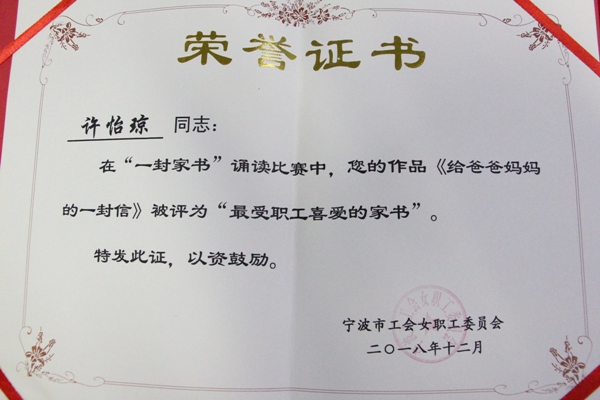 荣誉证书
许怡琼 同志：
在“一封家书”诵读比赛中，您的作品《给爸爸妈妈
的一封信》被评为“最受职工喜爱的家书”。
特发此证，以资鼓励。
宁波市工会女职工委员会
二〇一八年十二月